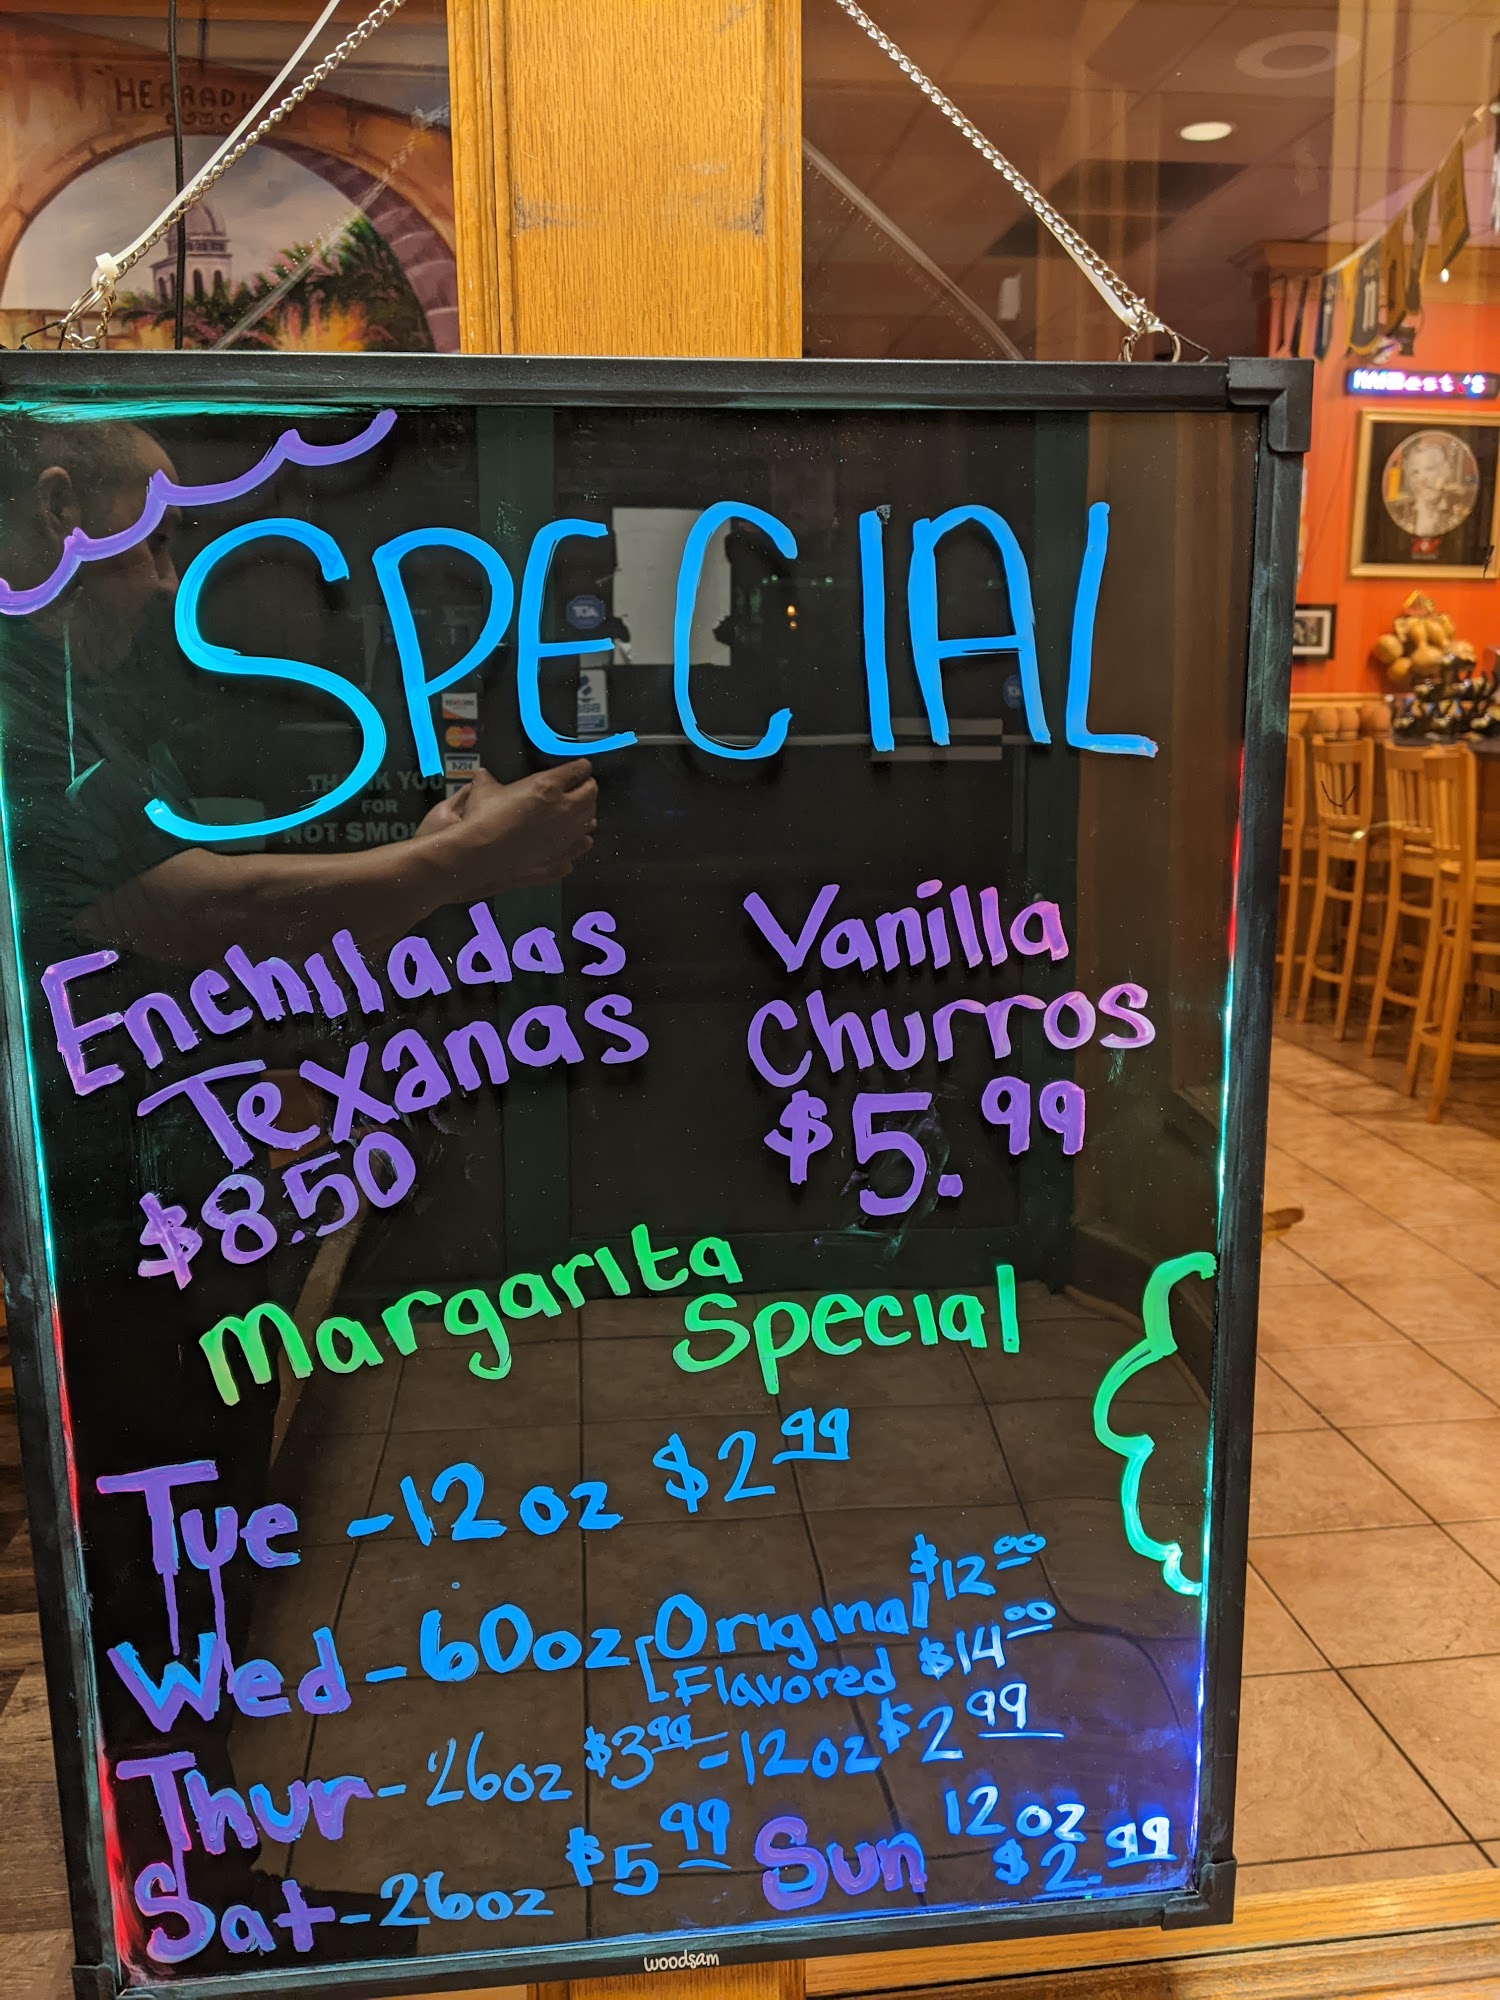 SPECIAL
Enchiladas
Texanas
$8.50
Vanilla
Churros
$5.99
Margarita
Special
Tue - 12oz $2 99
Wed - 60oz Original $12 00
Flavored $14 00
Thur - 26oz $3 99 - 12oz $2 99
Sat - 26oz $5 99
Sun 12oz
$2.99
woodsam
THANK YOU
FOR